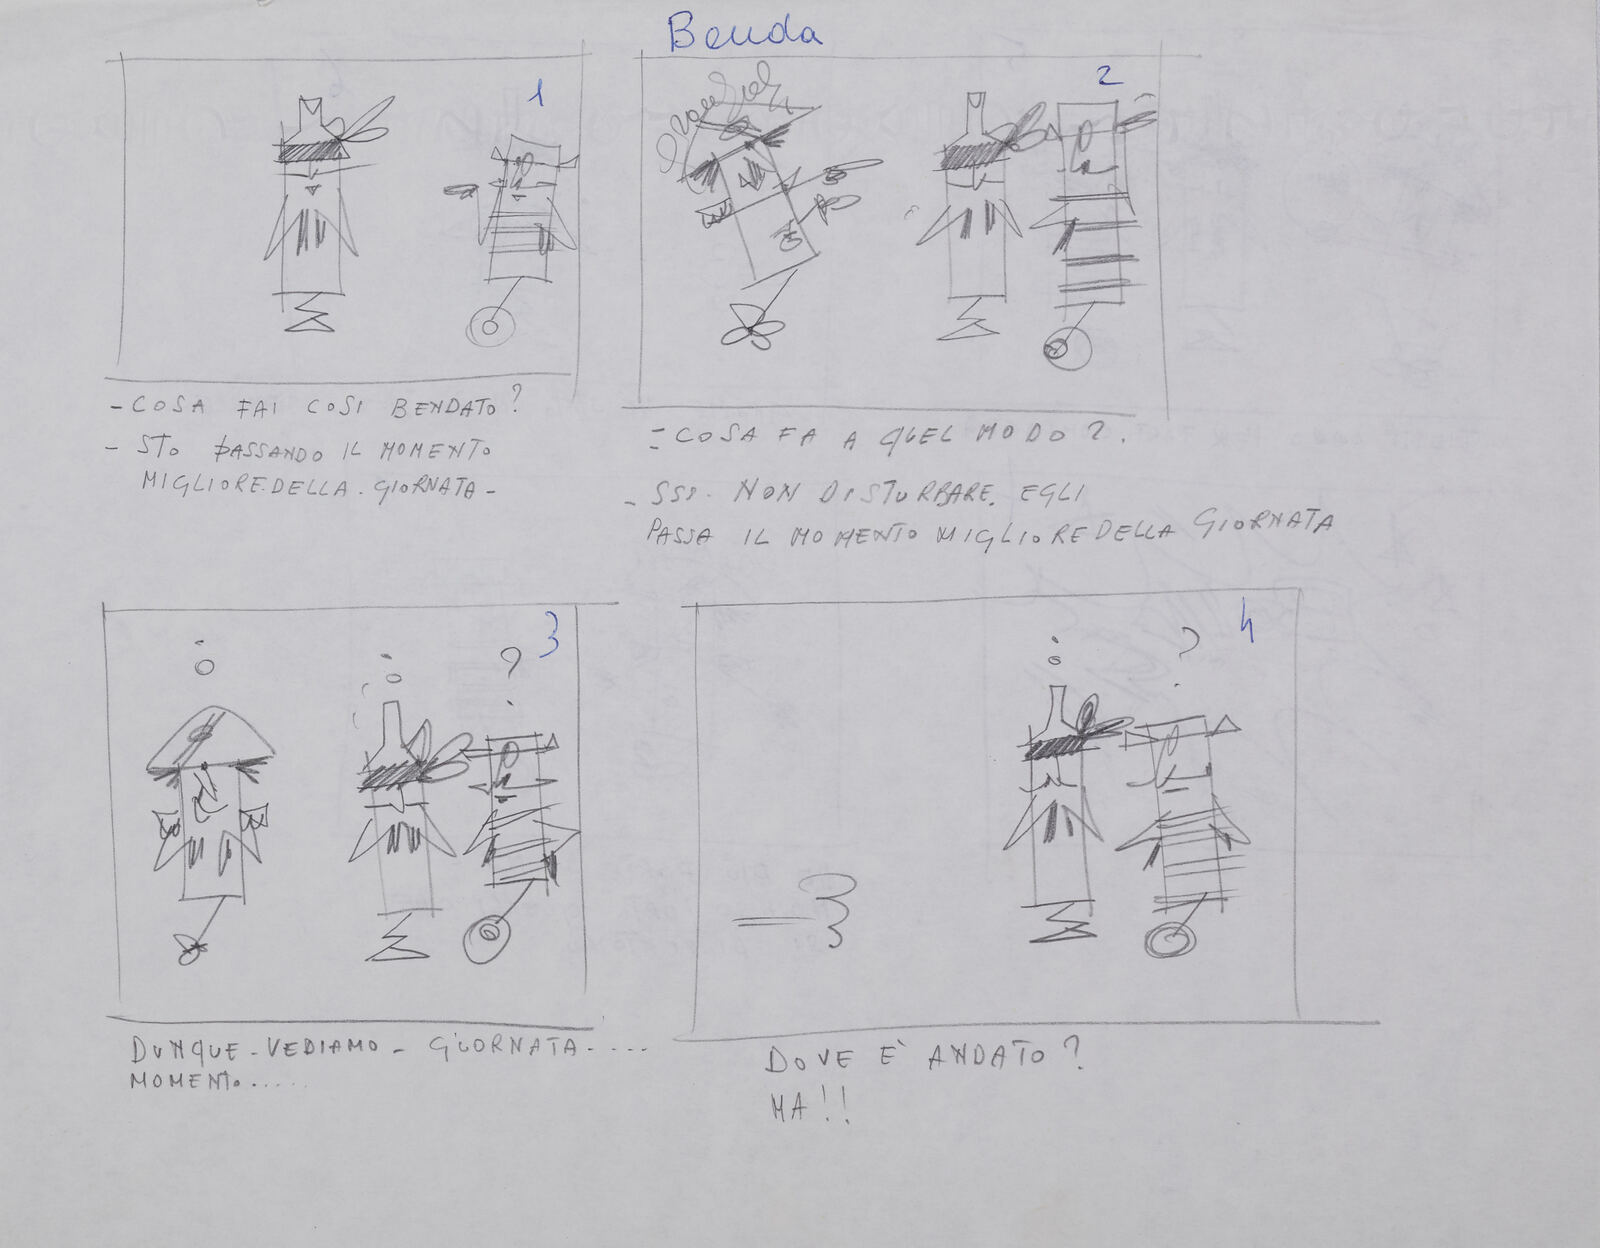 Benda
1
2
- COSA FAI COSI BENDATO?
- STO PASSANDO IL MOMENTO
MIGLIORE.DELLA.GIORNATA -
- COSA FA A QUEL MODO?.
- SSS. NON DISTURBARE. EGLI
PASSA IL MOMENTO MIGLIORE DELLA GIORNATA
3
?
4
?
DUNQUE - VEDIAMO - GIORNATA.....
MOMENTO......
DOVE È ANDATO?
MA!!